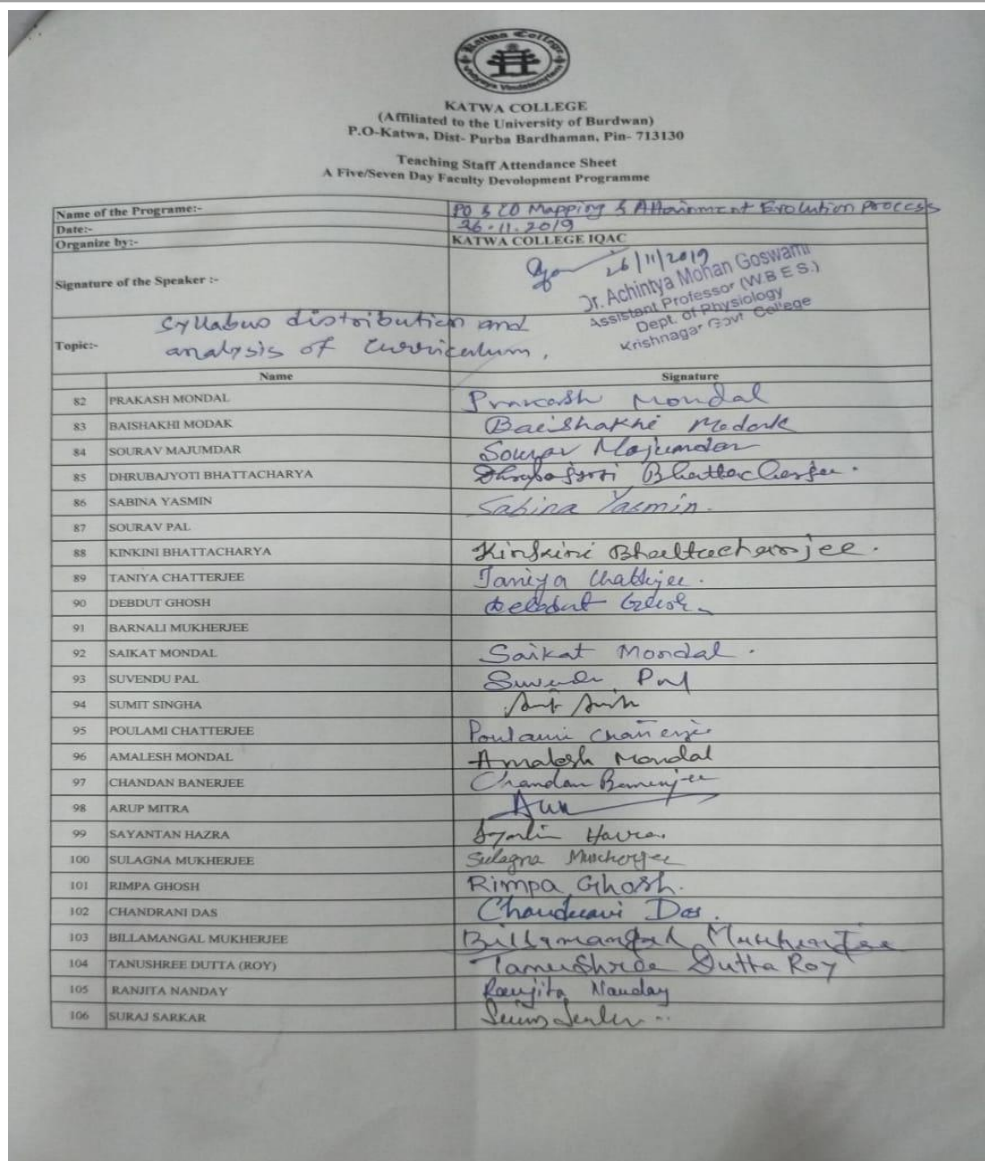 Katwa College
KATWA COLLEGE
(Affiliated to the University of Burdwan)
P.O-Katwa, Dist- Purba Bardhaman, Pin- 713130
Teaching Staff Attendance Sheet
A Five/Seven Day Faculty Devolopment Programme
Name of the Programe:- PO & CO Mapping & Attainment Evolution Process
Date:- 26.11.2019
Organize by:- KATWA COLLEGE IQAC
Signature of the Speaker :- 26/11/2019
Dr. Achintya Mohan Goswami
Assistant Professor (W.B.E.S.)
Dept. of Physiology
Krishnagar Govt College
Topic:- Syllabus distribution and
analysis of curriculum.
Name Signature
82 PRAKASH MONDAL Prakash Mondal
83 BAISHAKHI MODAK Baishakhi Modak
84 SOURAV MAJUMDAR Sourav Majumdar
85 DHRUBAJYOTI BHATTACHARYA Dhrubajyoti Bhattacherjee.
86 SABINA YASMIN Sabina Yasmin.
87 SOURAV PAL
88 KINKINI BHATTACHARYA Kinkini Bhattacharjee.
89 TANIYA CHATTERJEE Taniya Chatterjee.
90 DEBDUT GHOSH Debdut Ghosh
91 BARNALI MUKHERJEE
92 SAIKAT MONDAL Saikat Mondal.
93 SUVENDU PAL Suvendu Pal
94 SUMIT SINGHA
95 POULAMI CHATTERJEE Poulami Chatterjee
96 AMALESH MONDAL Amalesh Mondal
97 CHANDAN BANERJEE Chandan Banerjee
98 ARUP MITRA
99 SAYANTAN HAZRA Hazra.
100 SULAGNA MUKHERJEE Sulagna Mukherjee
101 RIMPA GHOSH Rimpa Ghosh.
102 CHANDRANI DAS Chandrani Das.
103 BILLAMANGAL MUKHERJEE Billamangal Mukherjee
104 TANUSHREE DUTTA (ROY) Tanushree Dutta Roy
105 RANJITA NANDAY Ranjita Nanday
106 SURAJ SARKAR